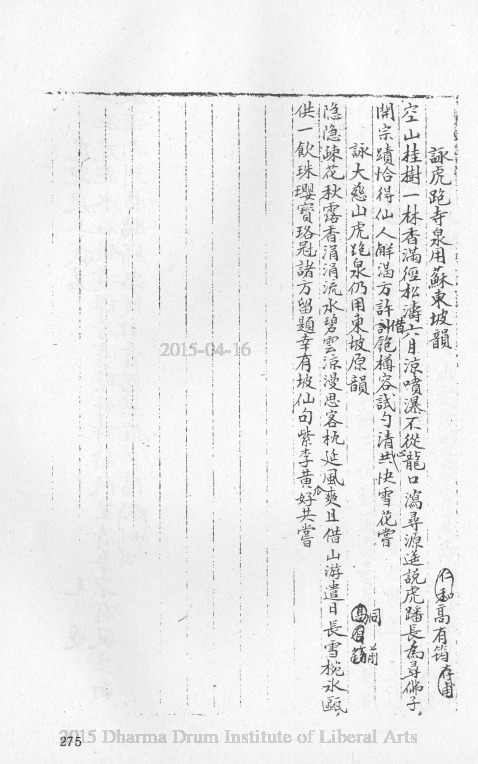 詠虎跑寺泉用蘇東坡韻
仁和高有筠存甫
空山桂樹一林香滿徑松濤六月涼噴瀑不從龍口瀉尋源遙說虎蹯長為尋佛子
開宗蹟恰得仙人解渴方許借匏樽容試勺清共快雪花嘗
詠大慈山虎跑泉仍用東坡原韻
同前
隐隐疎花秋露香涓涓流水碧雲涼漫思客枕延風爽且借山游遣日長雪椀氷甌
供一飲珠瓔寶珞冠諸方留題幸有坡仙句紫李黃好共嘗
2015-04-16
275
2015 Dharma Drum Institute of Liberal Arts